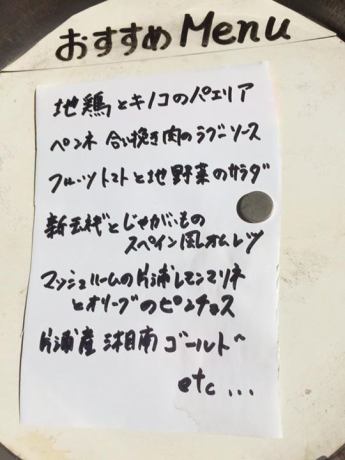 おすすめ Menu
地鶏とキノコのパエリア
ペンネ 合い挽き肉のラグーソース
フルーツトマトと地野菜のサラダ
新玉ネギとじゃがいもの
スペイン風オムレツ
マッシュルームの片浦レモンマリネ
とオリーブのピンチョス
片浦産 湘南ゴールド
etc ...